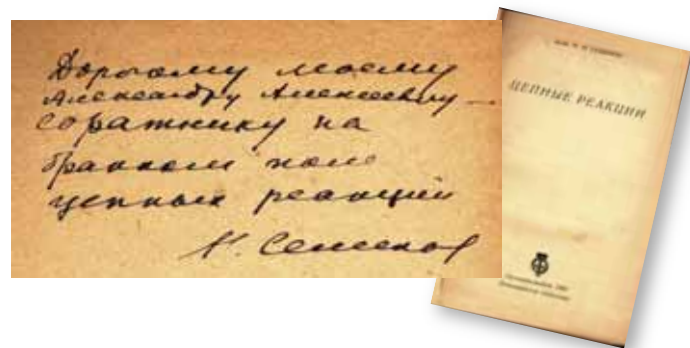 Дорогому моему
Александру Алексеевичу —
соратнику на
бранном поле
цепных реакций
Н. Семенов
ЦЕПНЫЕ РЕАКЦИИ